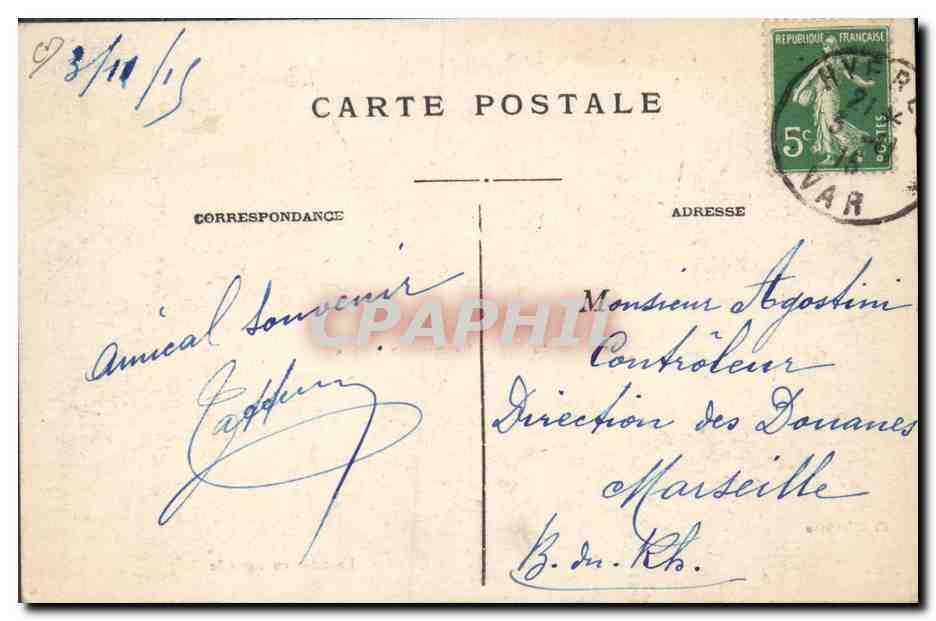 3/11/15
CARTE POSTALE
CORRESPONDANCE
ADRESSE
RÉPUBLIQUE FRANÇAISE
5c
POSTES
HYÈRE
21 *
VAR
Amical souvenir
Monsieur Agostini
Contrôleur
Direction des Douanes
Marseille
B. du. Rh.
CPAPHIL